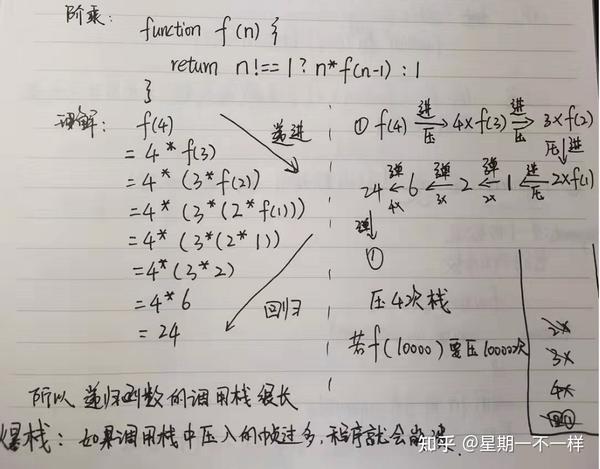 阶乘:
function f(n) {
return n!== 1 ? n*f(n-1) : 1
}
理解: f(4)
= 4 * f(3)
= 4 * (3*f(2))
= 4 * (3*(2*f(1)))
= 4 * (3*(2*1))
= 4*(3*2)
= 4*6
= 24
递进
回归
① f(4) 进 压 4×f(3) 进 压 3×f(2)
进 压
24 弹 4× 6 弹 3× 2 弹 2× 1 进 压 2×f(1)
弹
①
压4次栈
若f(10000)要压10000次
2×
3×
4×
①
所以 递归函数的调用栈很长
爆栈: 如果调用栈中压入的帧过多,程序就会崩溃.
知乎 @星期一不一样